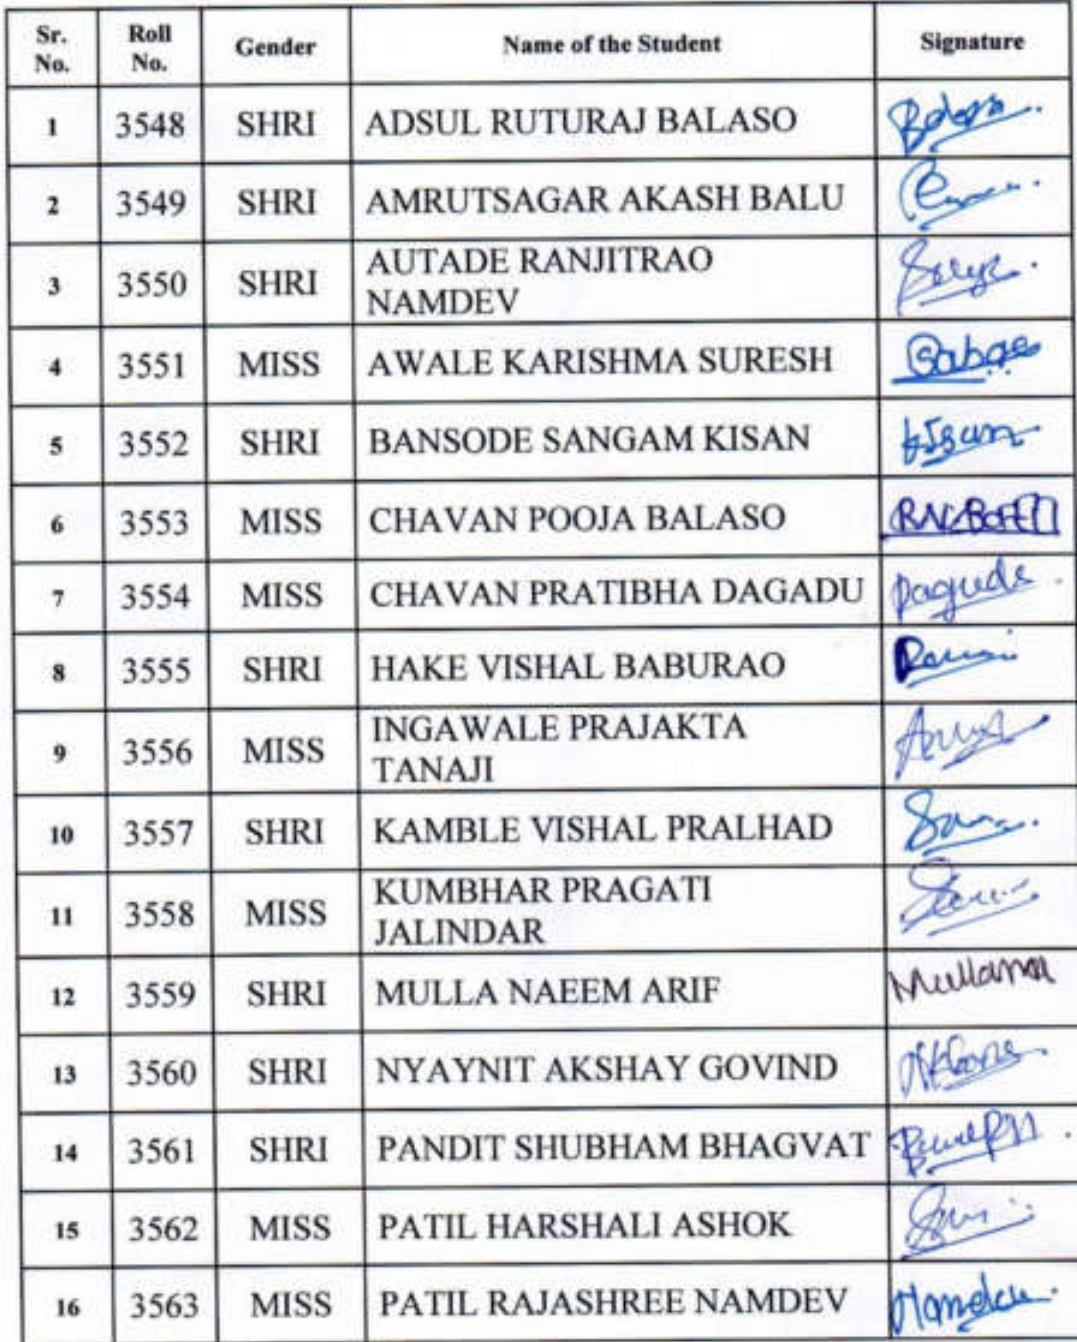 Sr. No. Roll No. Gender Name of the Student Signature
1 3548 SHRI ADSUL RUTURAJ BALASO
2 3549 SHRI AMRUTSAGAR AKASH BALU
3 3550 SHRI AUTADE RANJITRAO
NAMDEV
4 3551 MISS AWALE KARISHMA SURESH
5 3552 SHRI BANSODE SANGAM KISAN
6 3553 MISS CHAVAN POOJA BALASO
7 3554 MISS CHAVAN PRATIBHA DAGADU
8 3555 SHRI HAKE VISHAL BABURAO
9 3556 MISS INGAWALE PRAJAKTA
TANAJI
10 3557 SHRI KAMBLE VISHAL PRALHAD
11 3558 MISS KUMBHAR PRAGATI
JALINDAR
12 3559 SHRI MULLA NAEEM ARIF
13 3560 SHRI NYAYNIT AKSHAY GOVIND
14 3561 SHRI PANDIT SHUBHAM BHAGVAT
15 3562 MISS PATIL HARSHALI ASHOK
16 3563 MISS PATIL RAJASHREE NAMDEV